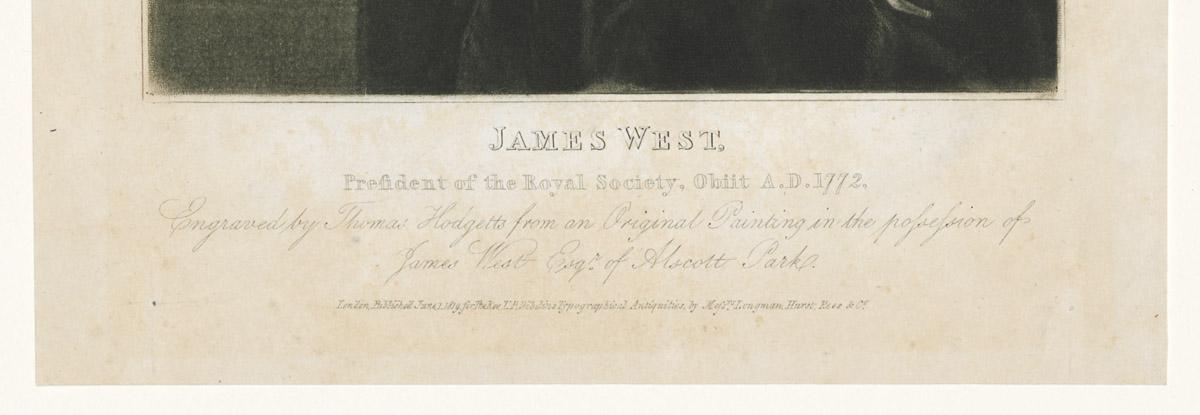 JAMES WEST,
Preſident of the Royal Society, Obiit A.D. 1772.
Engraved by Thomas Hodgetts from an Original Painting in the poſseſsion of
James West Esqr. of Alscott Park.
London, Published June 1, 1819, for the Rev. T. F. Dibdins Typographical Antiquities, by Meſsrs. Longman, Hurst, Rees & Co.